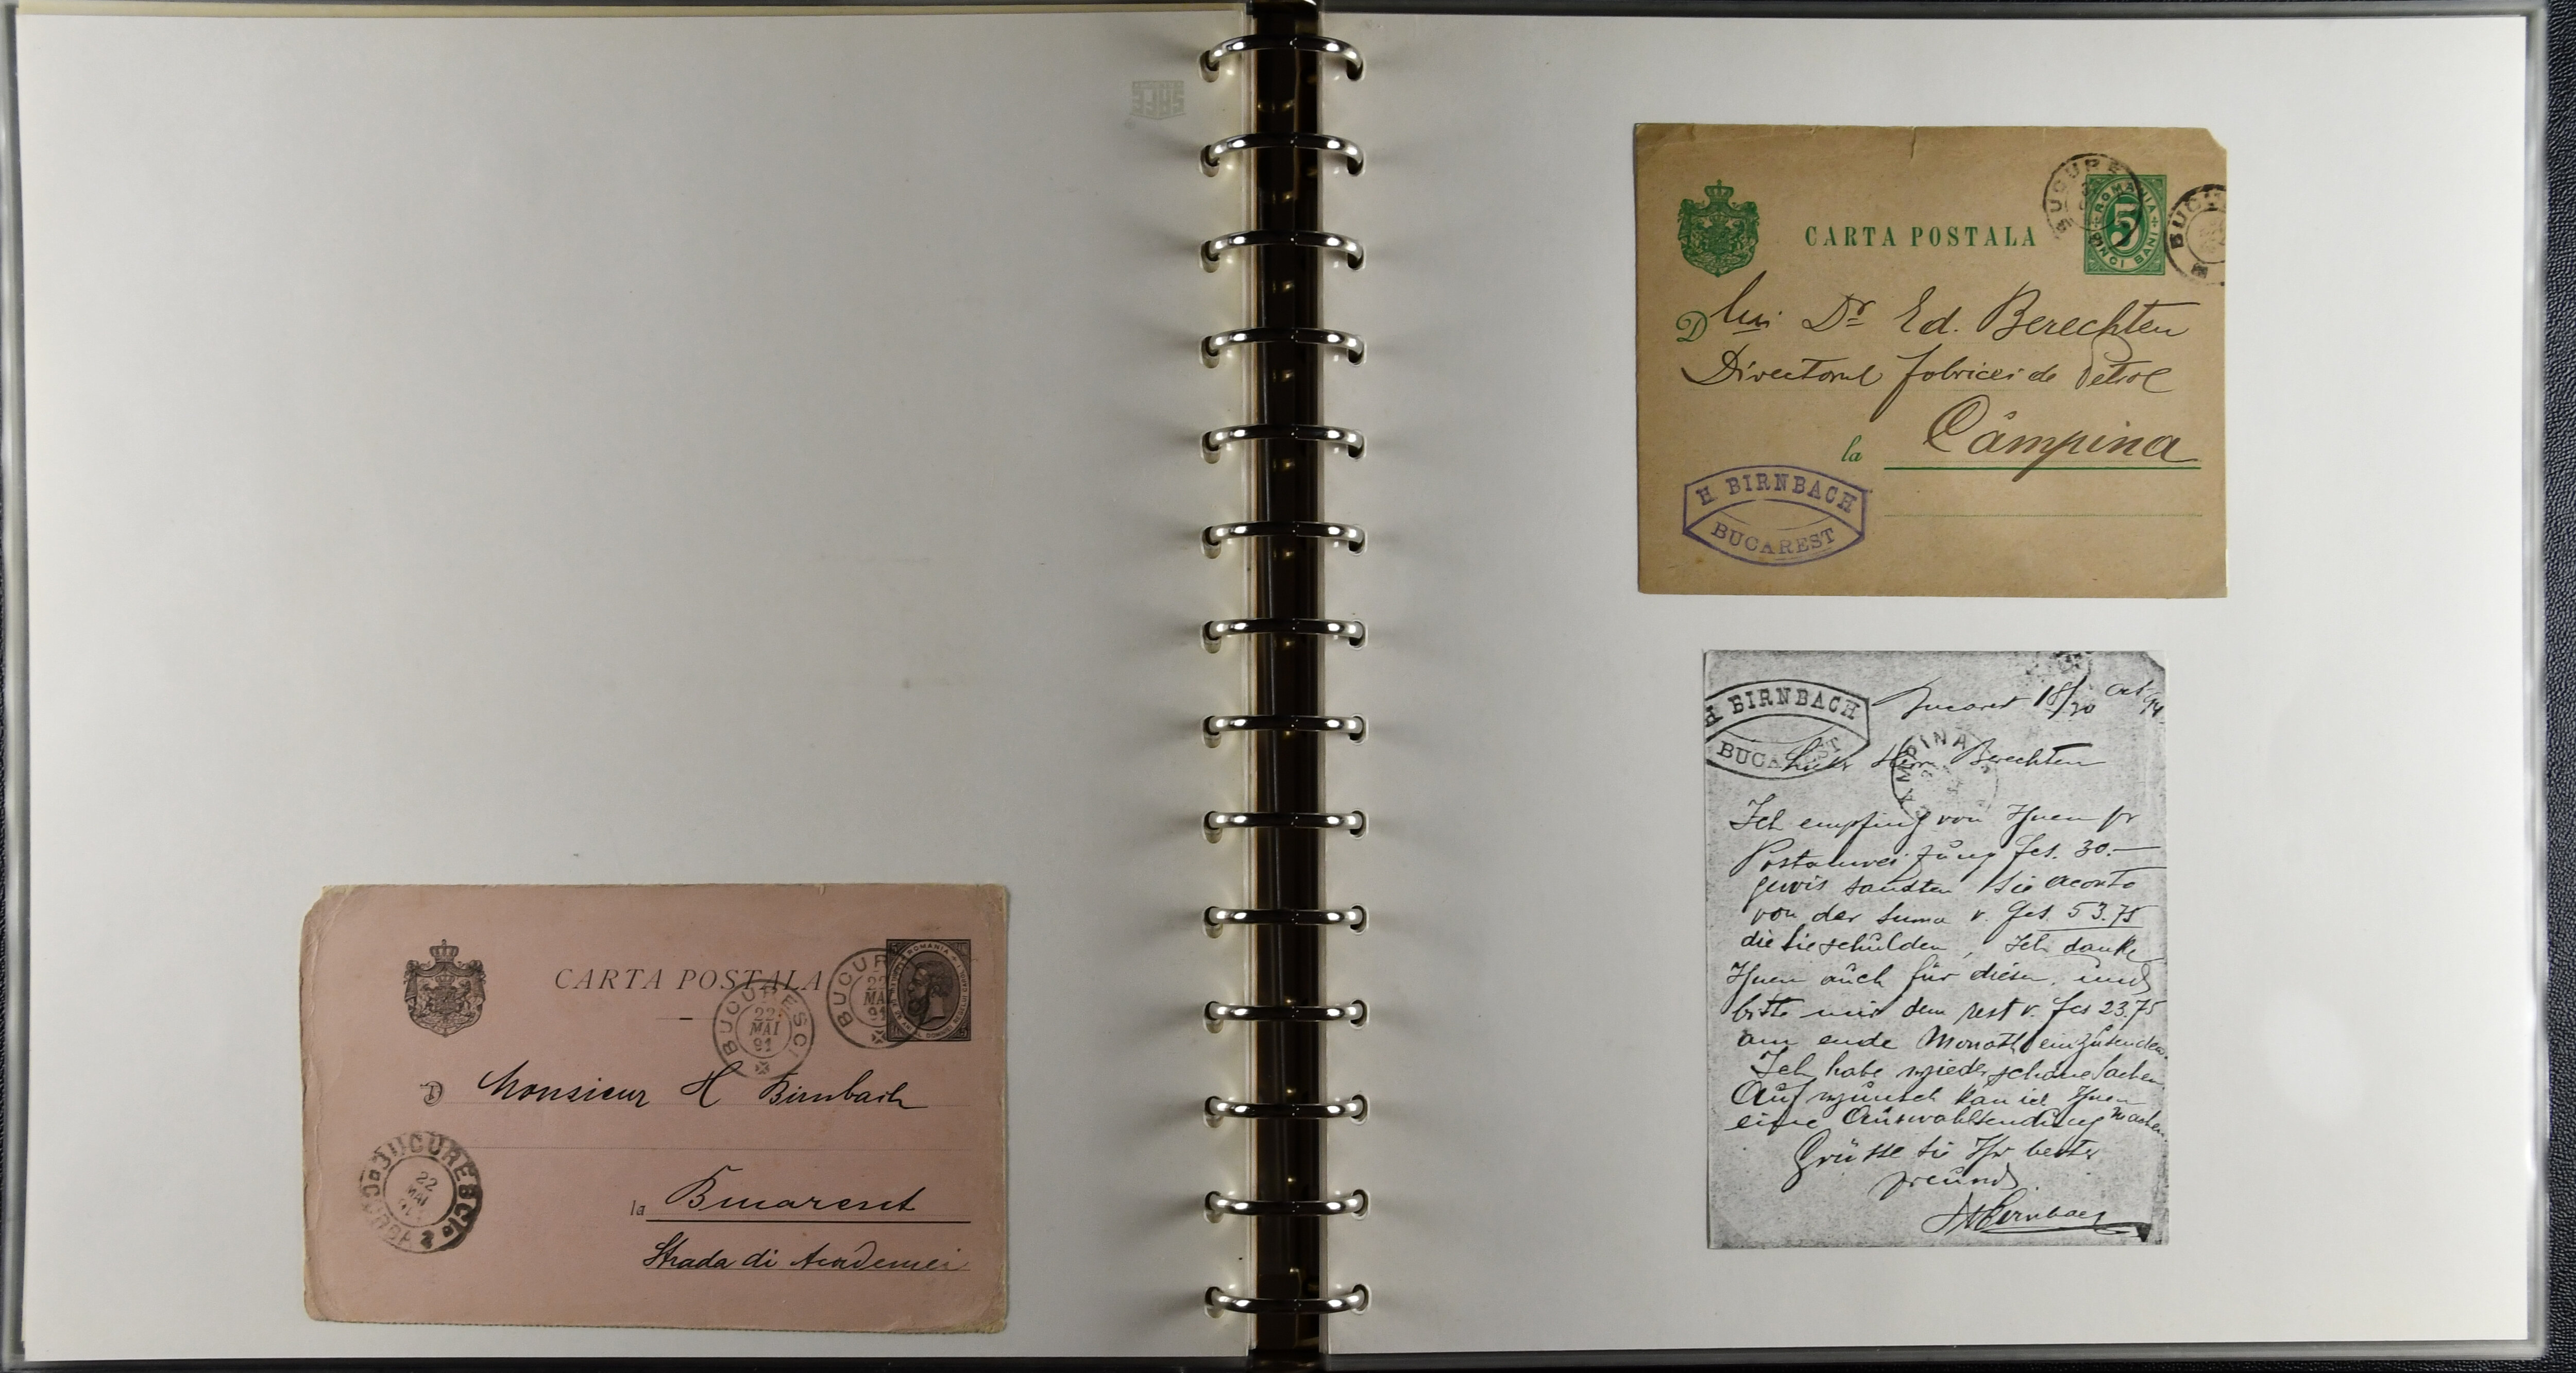 CARTA POSTALA
BUCURESCI
22
MAI
91
BUCUR
22
MA
91
ROMANIA
D Monsieur H Birnbach
BUCURESCI
22
MAI
la Bucarest
Strada di Academiei
CARTA POSTALA
BUCURE
ROMANIA
5
CINCI BANI
BUC
D lui Dr Ed. Berechten
Directorul fabricei de Petrol
la Câmpina
H BIRNBACH
BUCAREST
H BIRNBACH
BUCAREST
Bucarest 18/30 Oct/94
CAMPINA
Lieber Herr Berechten
Ich empfing von Ihnen pr
Postanweisung fcs. 30.—
gewis sandten Sie aconto
von der Suma v. fcs. 53.75
die Sie schulden, Ich danke
Ihnen auch für diesen, und
bitte mir dem rest v. fcs 23.75
am ende Monath einzusenden.
Ich habe wieder schöne Sachen.
Auf wunsch kan ich Ihnen
eine Auswahlsendung machen.
Grüsse Sie Ihr bester
freund.
H Birnbach